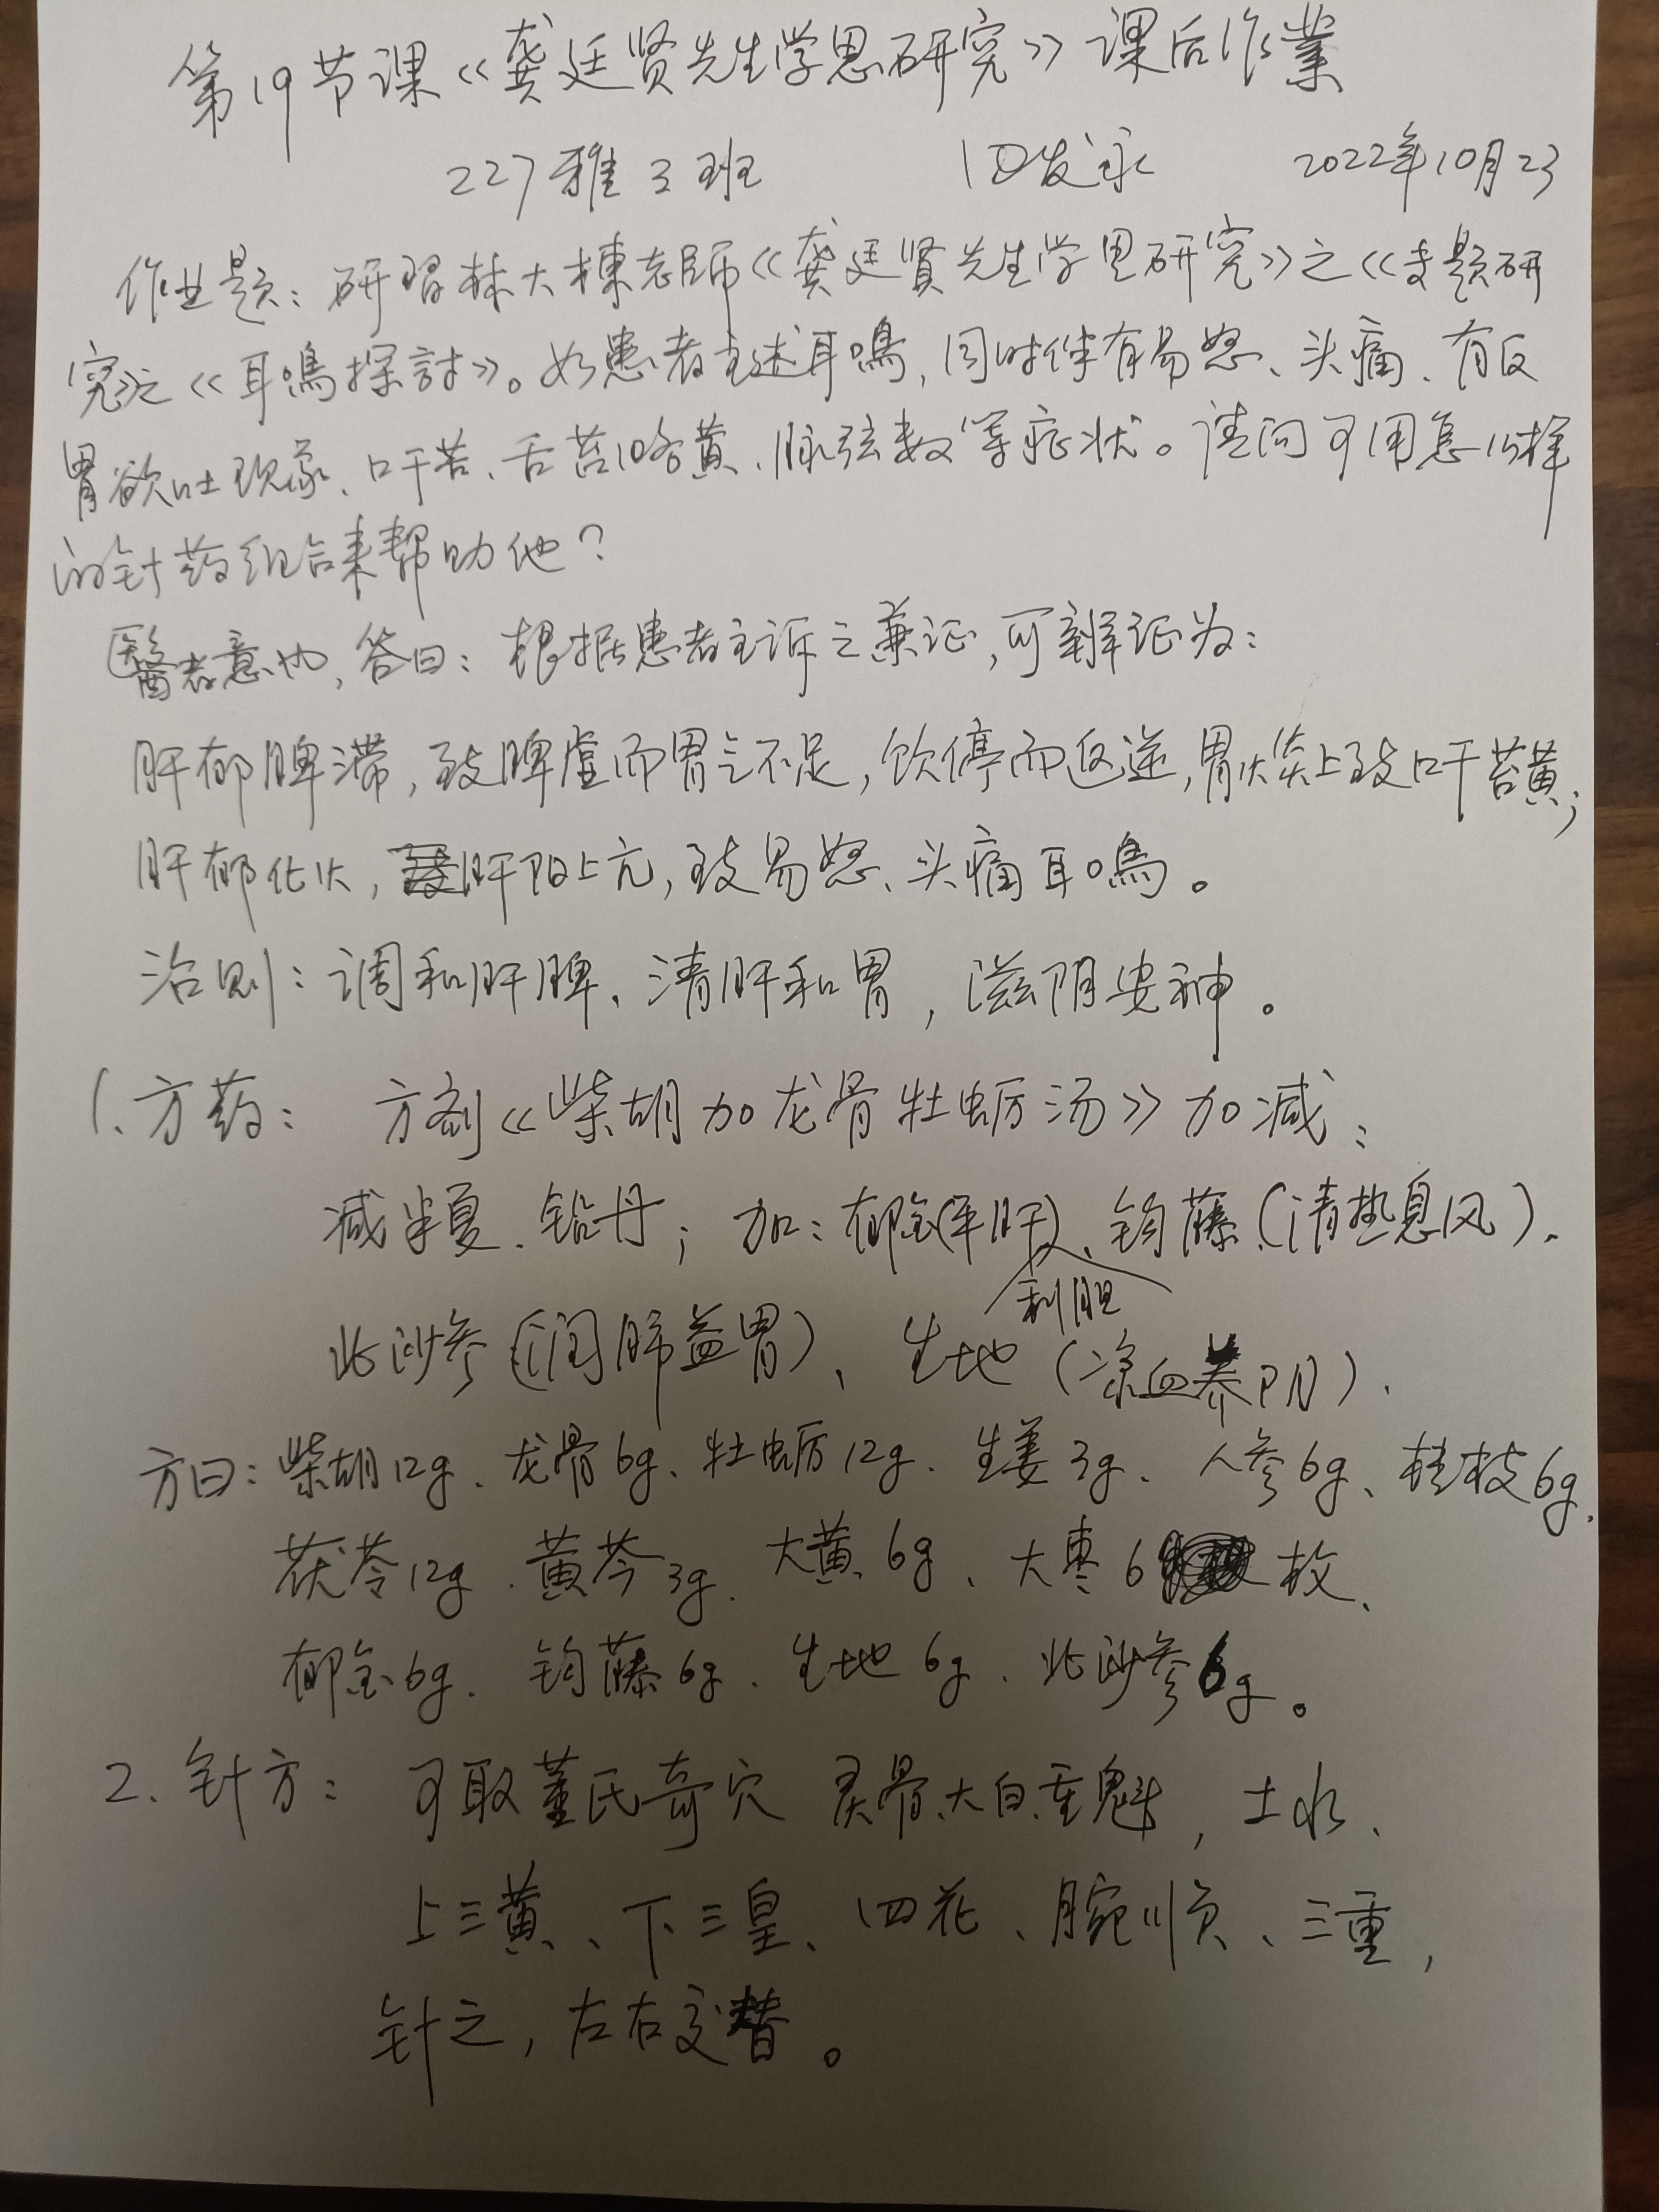 第19节课《龚廷贤先生学思研究》课后作業
227雅3班 发永 2022年10月23
作业题：研習林大棟老師《龚廷賢先生学思研究》之《专题研
究》之《耳鳴探討》。如患者主述耳鳴，同时伴有易怒、头痛、有反
胃欲吐现象、口干苦、舌苔略黄、脉弦数等症状。请问可用怎么样
的针药组合来帮助他？
醫者意也，答曰：根据患者主诉之兼证，可辨证为：
肝郁脾滞，致脾虚而胃气不足，饮停而返逆，胃火炎上致口干苔黄；
肝郁化火，肝阳上亢，致易怒、头痛耳鳴。
治则：调和肝脾、清肝和胃，滋阴安神。
1、方药： 方剂《柴胡加龙骨牡蛎汤》加减：
减半夏、铅丹；加：郁金（平肝利胆）、钩藤（清热息风）、
北沙参（润肺益胃）、生地（凉血养阴）.
方曰：柴胡12g、龙骨6g、牡蛎12g、生姜3g、人参6g、桂枝6g、
茯苓12g、黄芩3g、大黄6g、大枣6枚、
郁金6g、钩藤6g、生地6g、北沙参6g。
2、针方： 可取董氏奇穴 灵骨、大白、重魁，土水、
上三黄、下三皇、四花、腕顺、三重，
针之，左右交替。